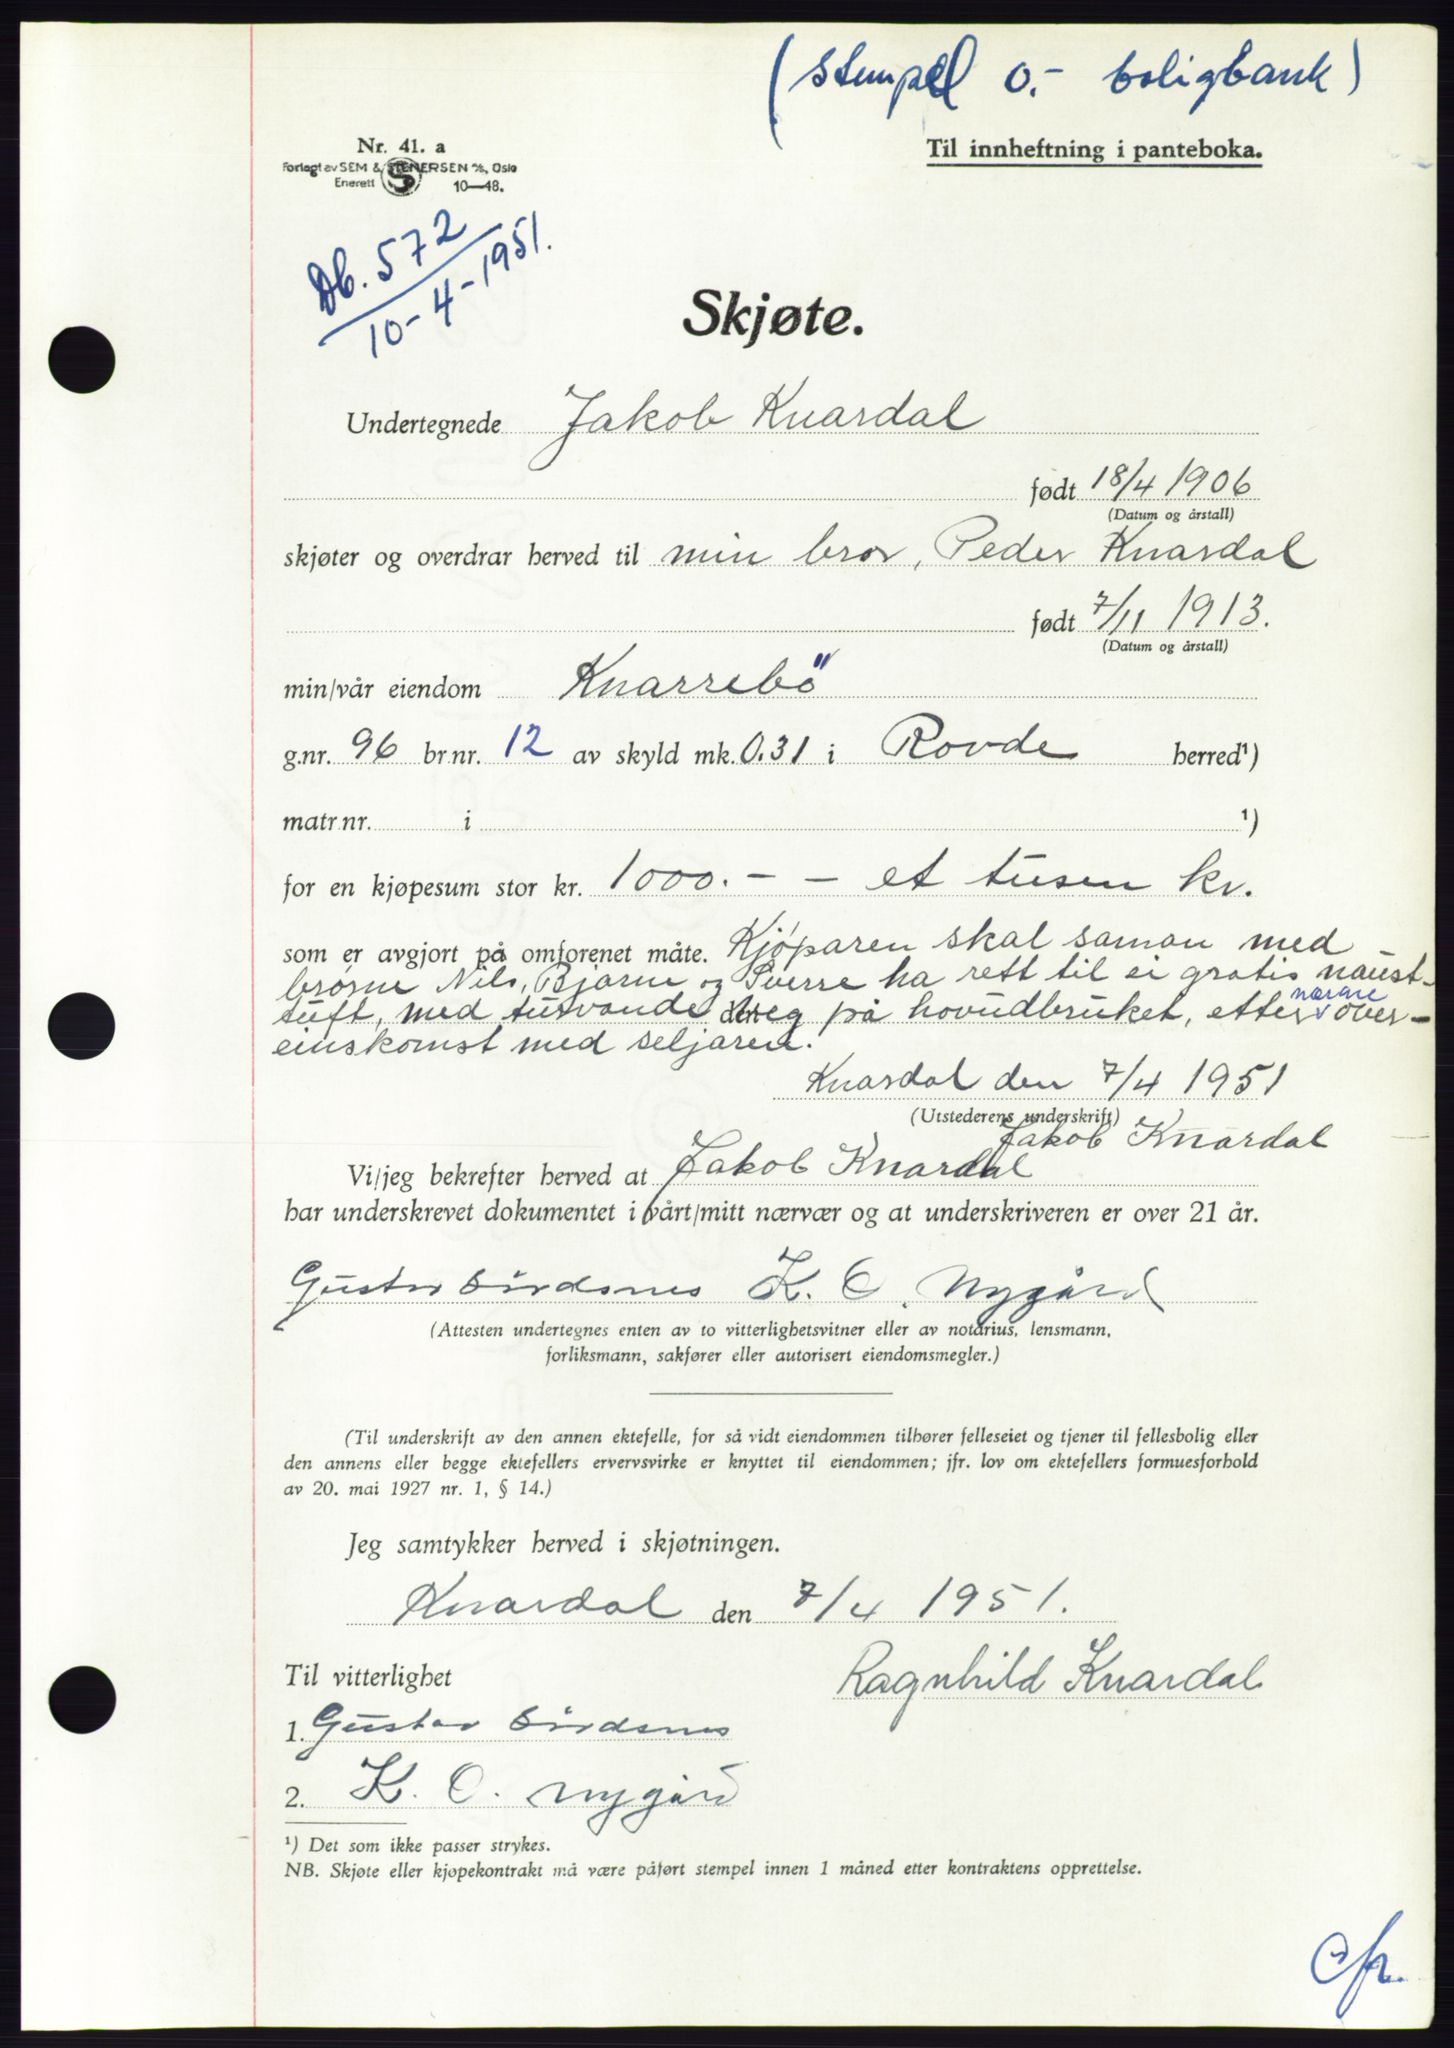 (stempel 0.- boligbank)
Nr. 41. a
Forlagt av SEM & STENERSEN A/S, Oslo
Enerett 10—48.
Til innheftning i panteboka.
Db. 572
10-4-1951.
Skjøte.
Undertegnede Jakob Knardal
født 18/4 1906
(Datum og årstall)
skjøter og overdrar herved til min bror, Peder Knardal
født 7/11 1913.
(Datum og årstall)
min/vår eiendom Knarrebö
g.nr. 96 br.nr. 12 av skyld mk. 0.31 i Rovde herred¹)
matr.nr. i ¹)
for en kjøpesum stor kr. 1000.- - et tusen kr.
som er avgjort på omforenet måte. Kjöparen skal saman med
brørne Nils, Bjarne og Sverre ha rett til ei gratis naust-
tuft, med turvande veg på hovudbruket, etter nærare över-
einskomst med seljaren.
Knardal den 7/4 1951
(Utstederens underskrift)
Jakob Knardal
Vi/jeg bekrefter herved at Jakob Knardal
har underskrevet dokumentet i vårt/mitt nærvær og at underskriveren er over 21 år.
Gustav K. O. Nygård
(Attesten undertegnes enten av to vitterlighetsvitner eller av notarius, lensmann,
forliksmann, sakfører eller autorisert eiendomsmegler.)
(Til underskrift av den annen ektefelle, for så vidt eiendommen tilhører felleseiet og tjener til fellesbolig eller
den annens eller begge ektefellers ervervsvirke er knyttet til eiendommen; jfr. lov om ektefellers formuesforhold
av 20. mai 1927 nr. 1, § 14.)
Jeg samtykker herved i skjøtningen.
Knardal den 7/4 1951.
Til vitterlighet
Ragnhild Knardal
1. Gustav
2. K. O. Nygård
¹) Det som ikke passer strykes.
NB. Skjøte eller kjøpekontrakt må være påført stempel innen 1 måned etter kontraktens opprettelse.